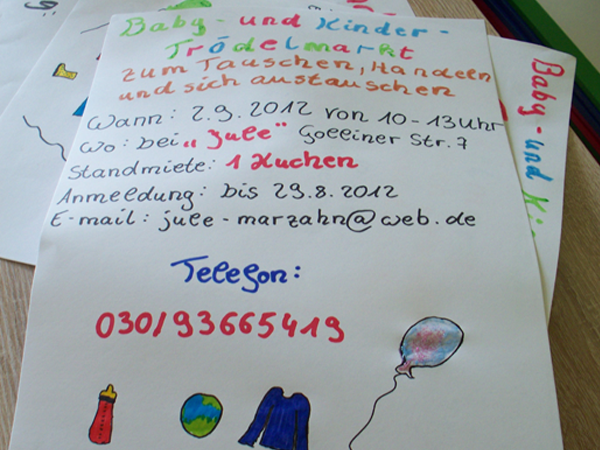 Baby - und Kinder -
Trödelmarkt
zum Tauschen, Handeln
und sich austauschen
Wann: 2.9.2012 von 10-13 Uhr
Wo: bei "Jule" Golliner Str. 7
Standmiete: 1 Kuchen
Anmeldung: bis 29.8.2012
E-mail: jule-marzahn@web.de
Telefon:
030/93665419
Baby - und Ki